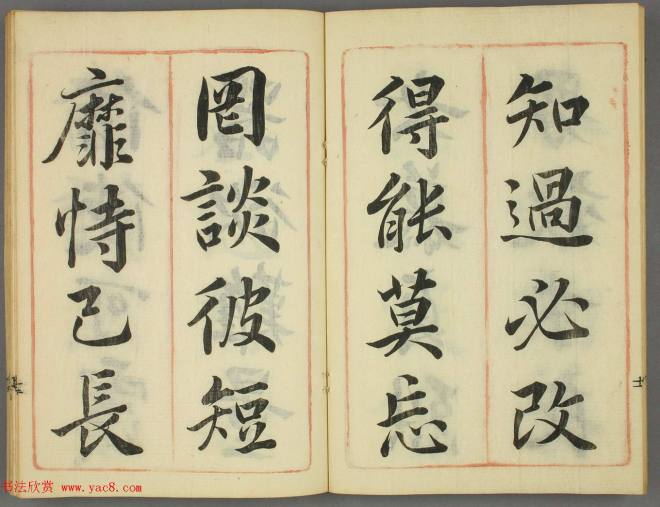 知過必改
得能莫忘
罔談彼短
靡恃己長
书法欣赏 www.yac8.com